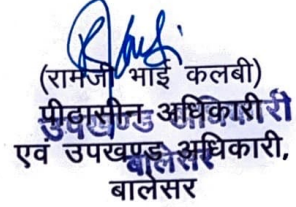 (रामजी भाई कलबी)
पीठासीन अधिकारी
उपखण्ड अधिकारी
एवं उपखण्ड अधिकारी,
बालेसर
बालेसर